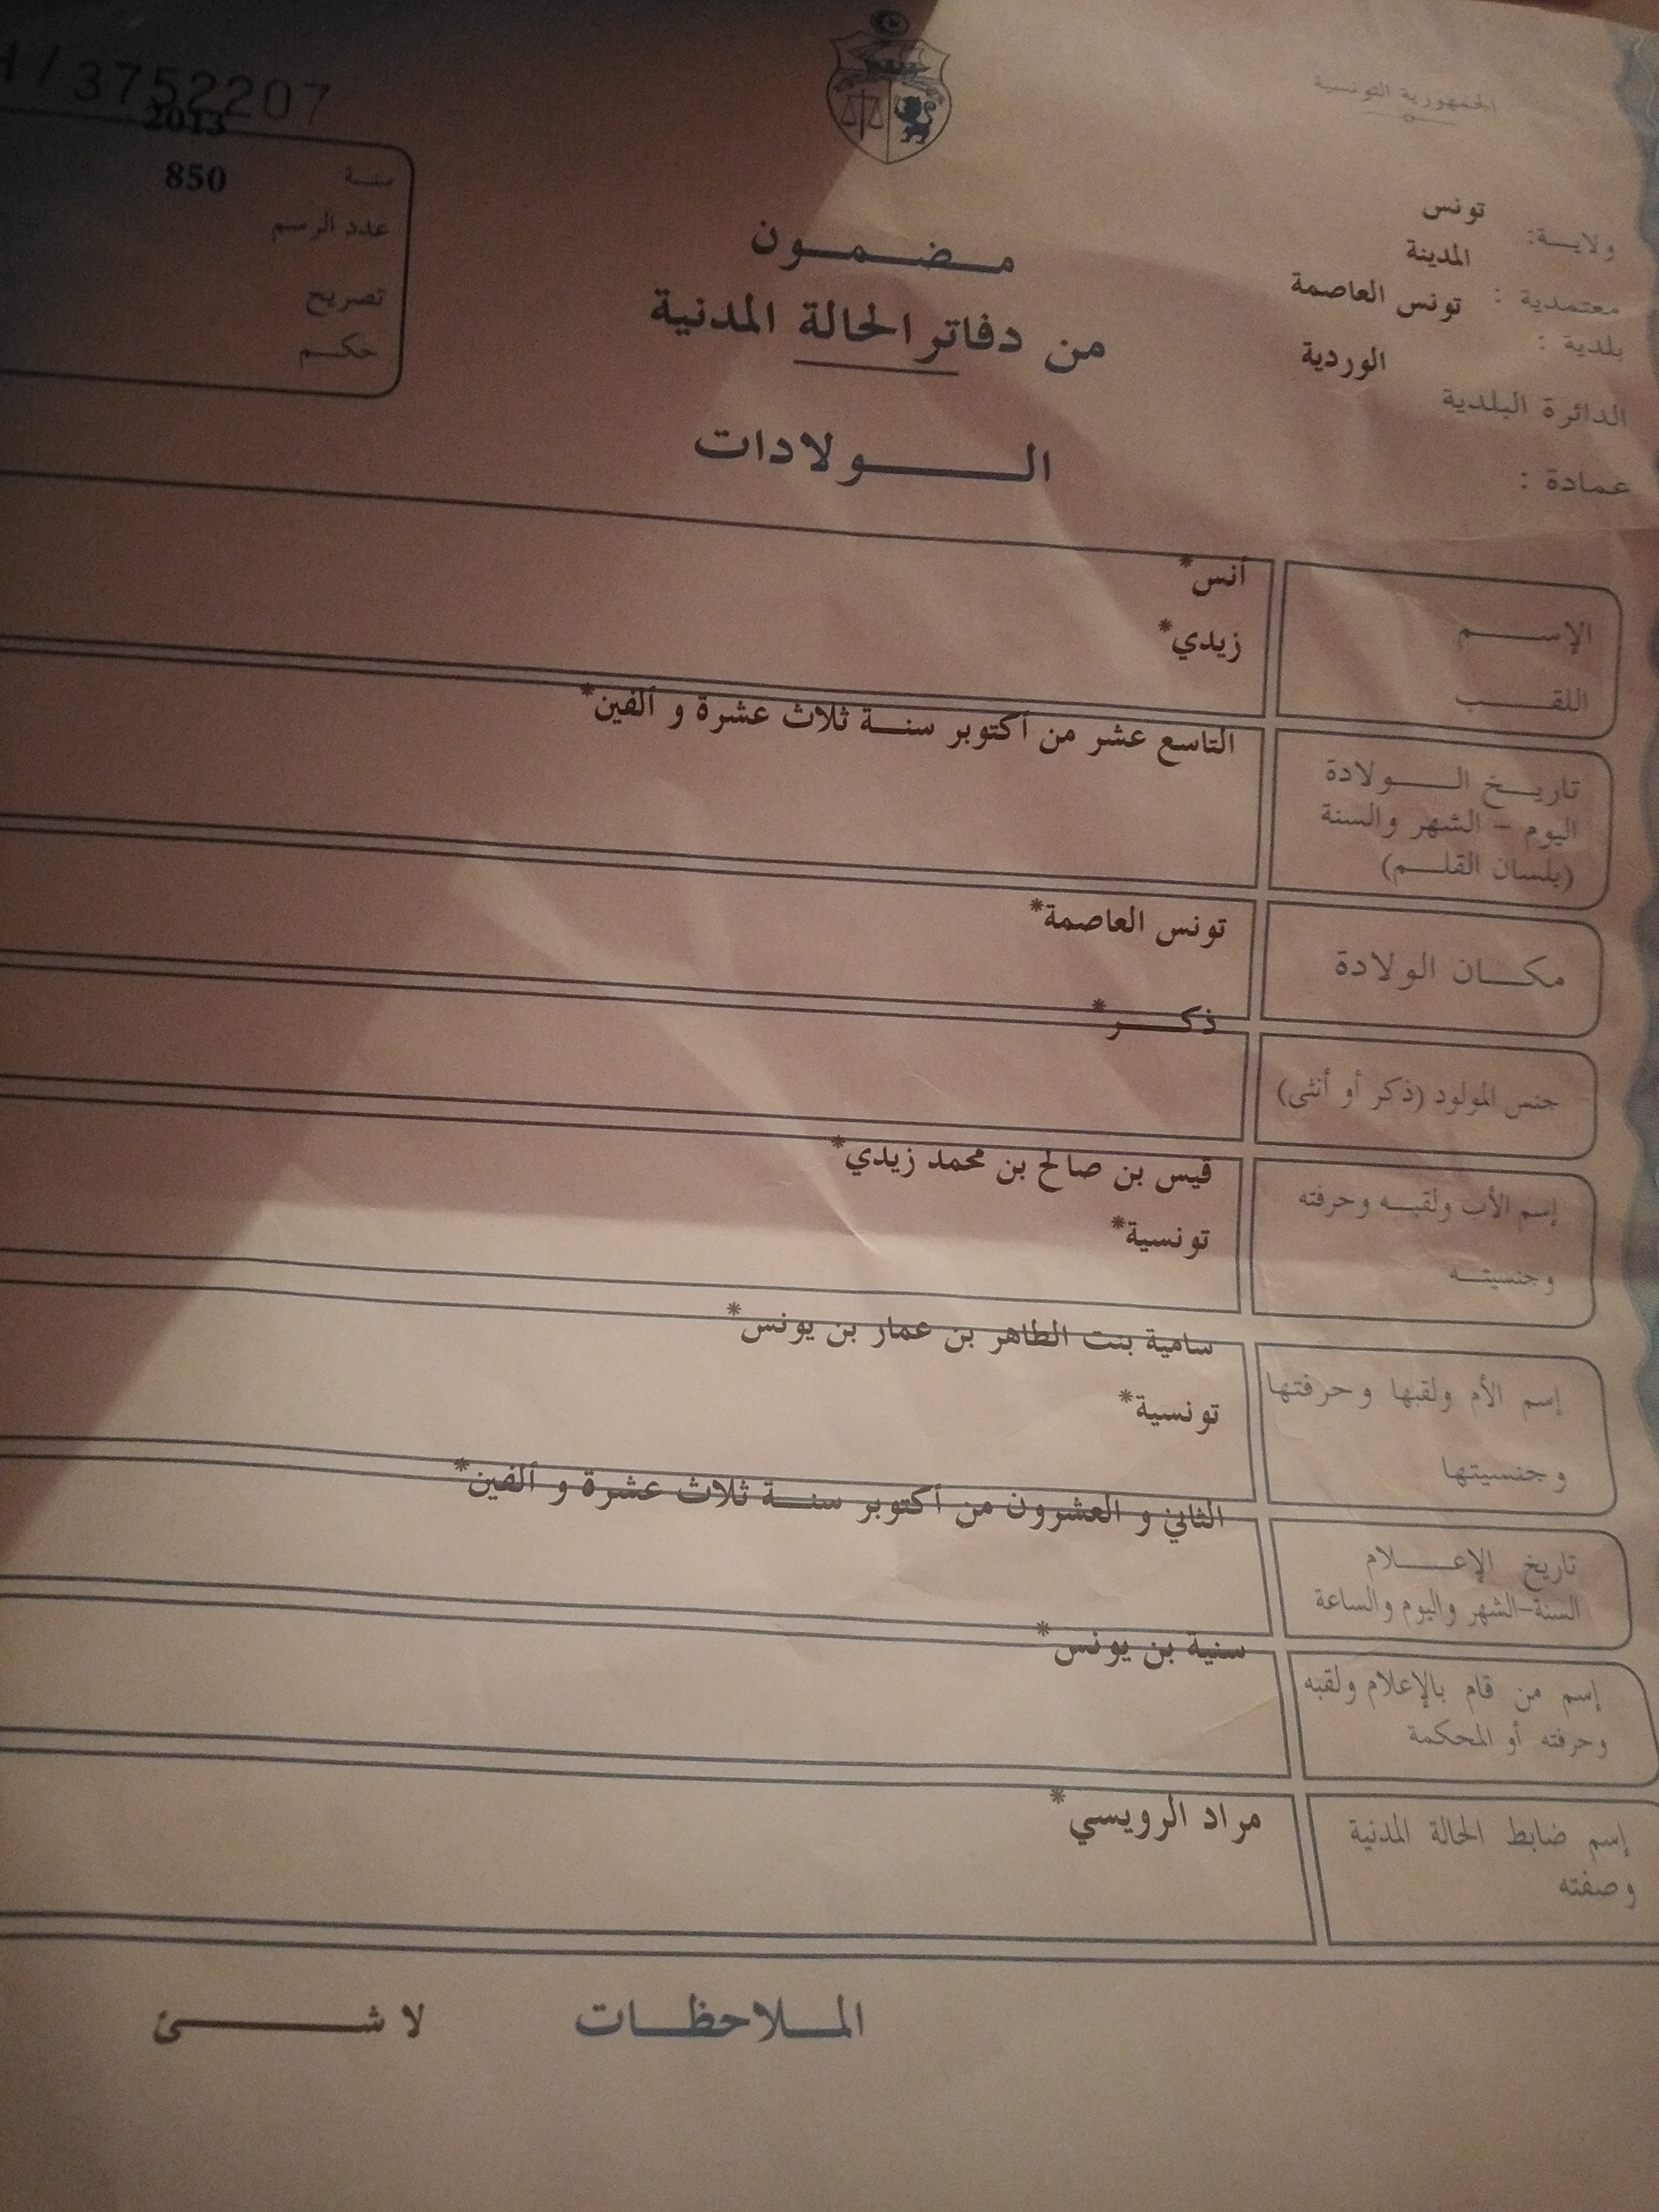 الجمهورية التونسية
ولايــة: تونس
معتمدية : المدينة
بلدية : تونس العاصمة
الدائرة البلدية الوردية
عمادة :
مـــضـــمـــون
من دفاتر الحالة المدنية
الــــــولادات
/ 3752207
2013
سنــة 850
عدد الرسم
تصريح
حكـــم
الإســـــم أنس*
اللقـــــب زيدي*
تاريـــخ الـــــولادة التاسع عشر من أكتوبر سنـــة ثلاث عشرة و ألفين*
اليوم – الشهر والسنة
(بلسان القلـــم)
مكـــان الولادة تونس العاصمة*
جنس المولود (ذكر أو أنثى) ذكـــــر*
إسم الأب ولقبــه وحرفته قيس بن صالح بن محمد زيدي*
وجنسيتــه تونسية*
إسم الأم ولقبها وحرفتها سامية بنت الطاهر بن عمار بن يونس*
وجنسيتها تونسية*
تاريخ الإعـــــلام الثاني و العشرون من أكتوبر سنـــة ثلاث عشرة و ألفين*
السنة-الشهر واليوم والساعة
إسم من قام بالإعلام ولقبه سنية بن يونس*
وحرفته أو المحكمة
إسم ضابط الحالة المدنية مراد الرويسي*
وصفته
المــلاحظــات لا شـــــــئ